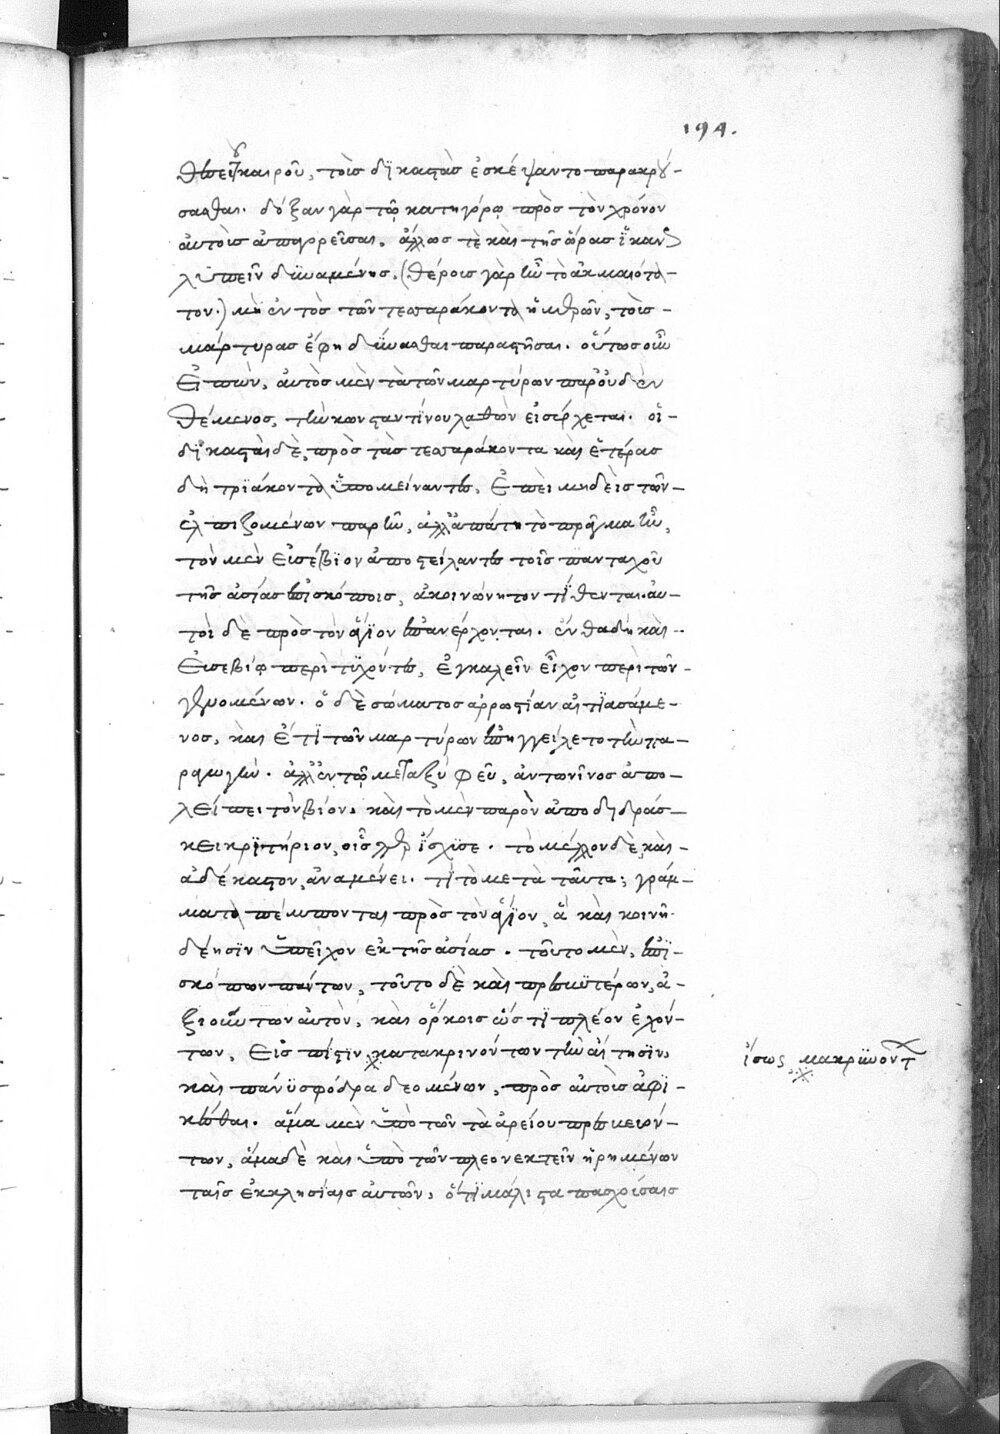 194.
θέσει τοῦ καιροῦ, τοὺς δικαστὰς ἐσκέψαντο παρακρού-
σασθαι. δόξαν γὰρ τῷ κατηγόρῳ πρὸς τὸν χρόνον
αὐτοὺς ἀπαγορεῦσαι, ἄλλως τὲ καὶ τῆς ὥρας ἱκανῶς
λυπεῖν δυναμένης, (θέρους γὰρ ἦν τὸ ἀκμαιότα-
τον.) μὴ ἐντὸς τῶν τεσσαράκοντα ἡμερῶν, τοὺς
μάρτυρας ἔφη δύνασθαι παραστῆσαι. οὕτως οὖν
εἰπὼν, αὐτὸς μὲν τὰ τῶν μαρτύρων παρ' οὐδὲν
θέμενος, τὴν κωνσταντίνου λαθὼν εἰσέρχεται. οἱ
δικασταὶ δὲ, πρὸς τὰς τεσσαράκοντα καὶ ἑτέρας
δὴ τριάκοντα ὑπομείναντες, ἐπεὶ μηδεὶς τῶν
ἐλπιζομένων παρῆν, ἀλλ' ἀπάτη τὸ πρᾶγμα ἦν,
τὸν μὲν εὐσέβιον ἀποστείλαντες τοῖς πανταχοῦ
τῆς ἀσίας ἐπισκόποις, ἀκοινώνητον τίθενται. αὐ-
τοὶ δὲ πρὸς τὸν ἅγιον ἐπανέρχονται. ἐνθαδὴ καὶ
εὐσεβίῳ περιτυχόντες, ἐγκαλεῖν εἶχον περὶ τῶν
γενομένων. ὁ δὲ σώματος ἀρρωστίαν αἰτιασάμε-
νος, καὶ ἔτι τῶν μαρτύρων ἐπηγγείλετο τὴν πα-
ραγωγήν. ἀλλ' ἐν τῷ μεταξὺ φεῦ, ἀντωνῖνος ἀπο-
λείπει τὸν βίον. καὶ τὸ μὲν παρὸν ἀποδιδράσ-
κει κριτήριον, οἷς ἴσχυσε. τὸ μέλλον δὲ καὶ
ἀδέκαστον, ἀναμένει. τί τὸ μετὰ ταῦτα; γράμ-
ματα πέμπονται πρὸς τὸν ἅγιον, ἃ καὶ κοινὴν
δέησιν ὑπεῖχον ἐκ τῆς ἀσίας. τοῦτο μὲν, ἐπι-
σκόπων πάντων, τοῦτο δὲ καὶ πρεσβυτέρων, ἀ-
ξιούντων αὐτὸν, καὶ ὅρκοις ὥς τι πλέον ἑλόν-
των, εἰς πίστιν κατακρινόντων τὴν αἴτησιν,
καὶ πάνυ σφόδρα δεομένων, πρὸς αὐτοὺς ἀφι-
κέσθαι. ἅμα μὲν ὑπὸ τῶν τὰ ἀρείου πρεσβευόν-
των, ἅμα δὲ καὶ ὑπὸ τῶν πλεονεκτεῖν ᾑρημένων
ταῖς ἐκκλησίαις αὐτῶν, ὅτι μάλιστα πασχούσαις
ἴσως μακρυνόντ